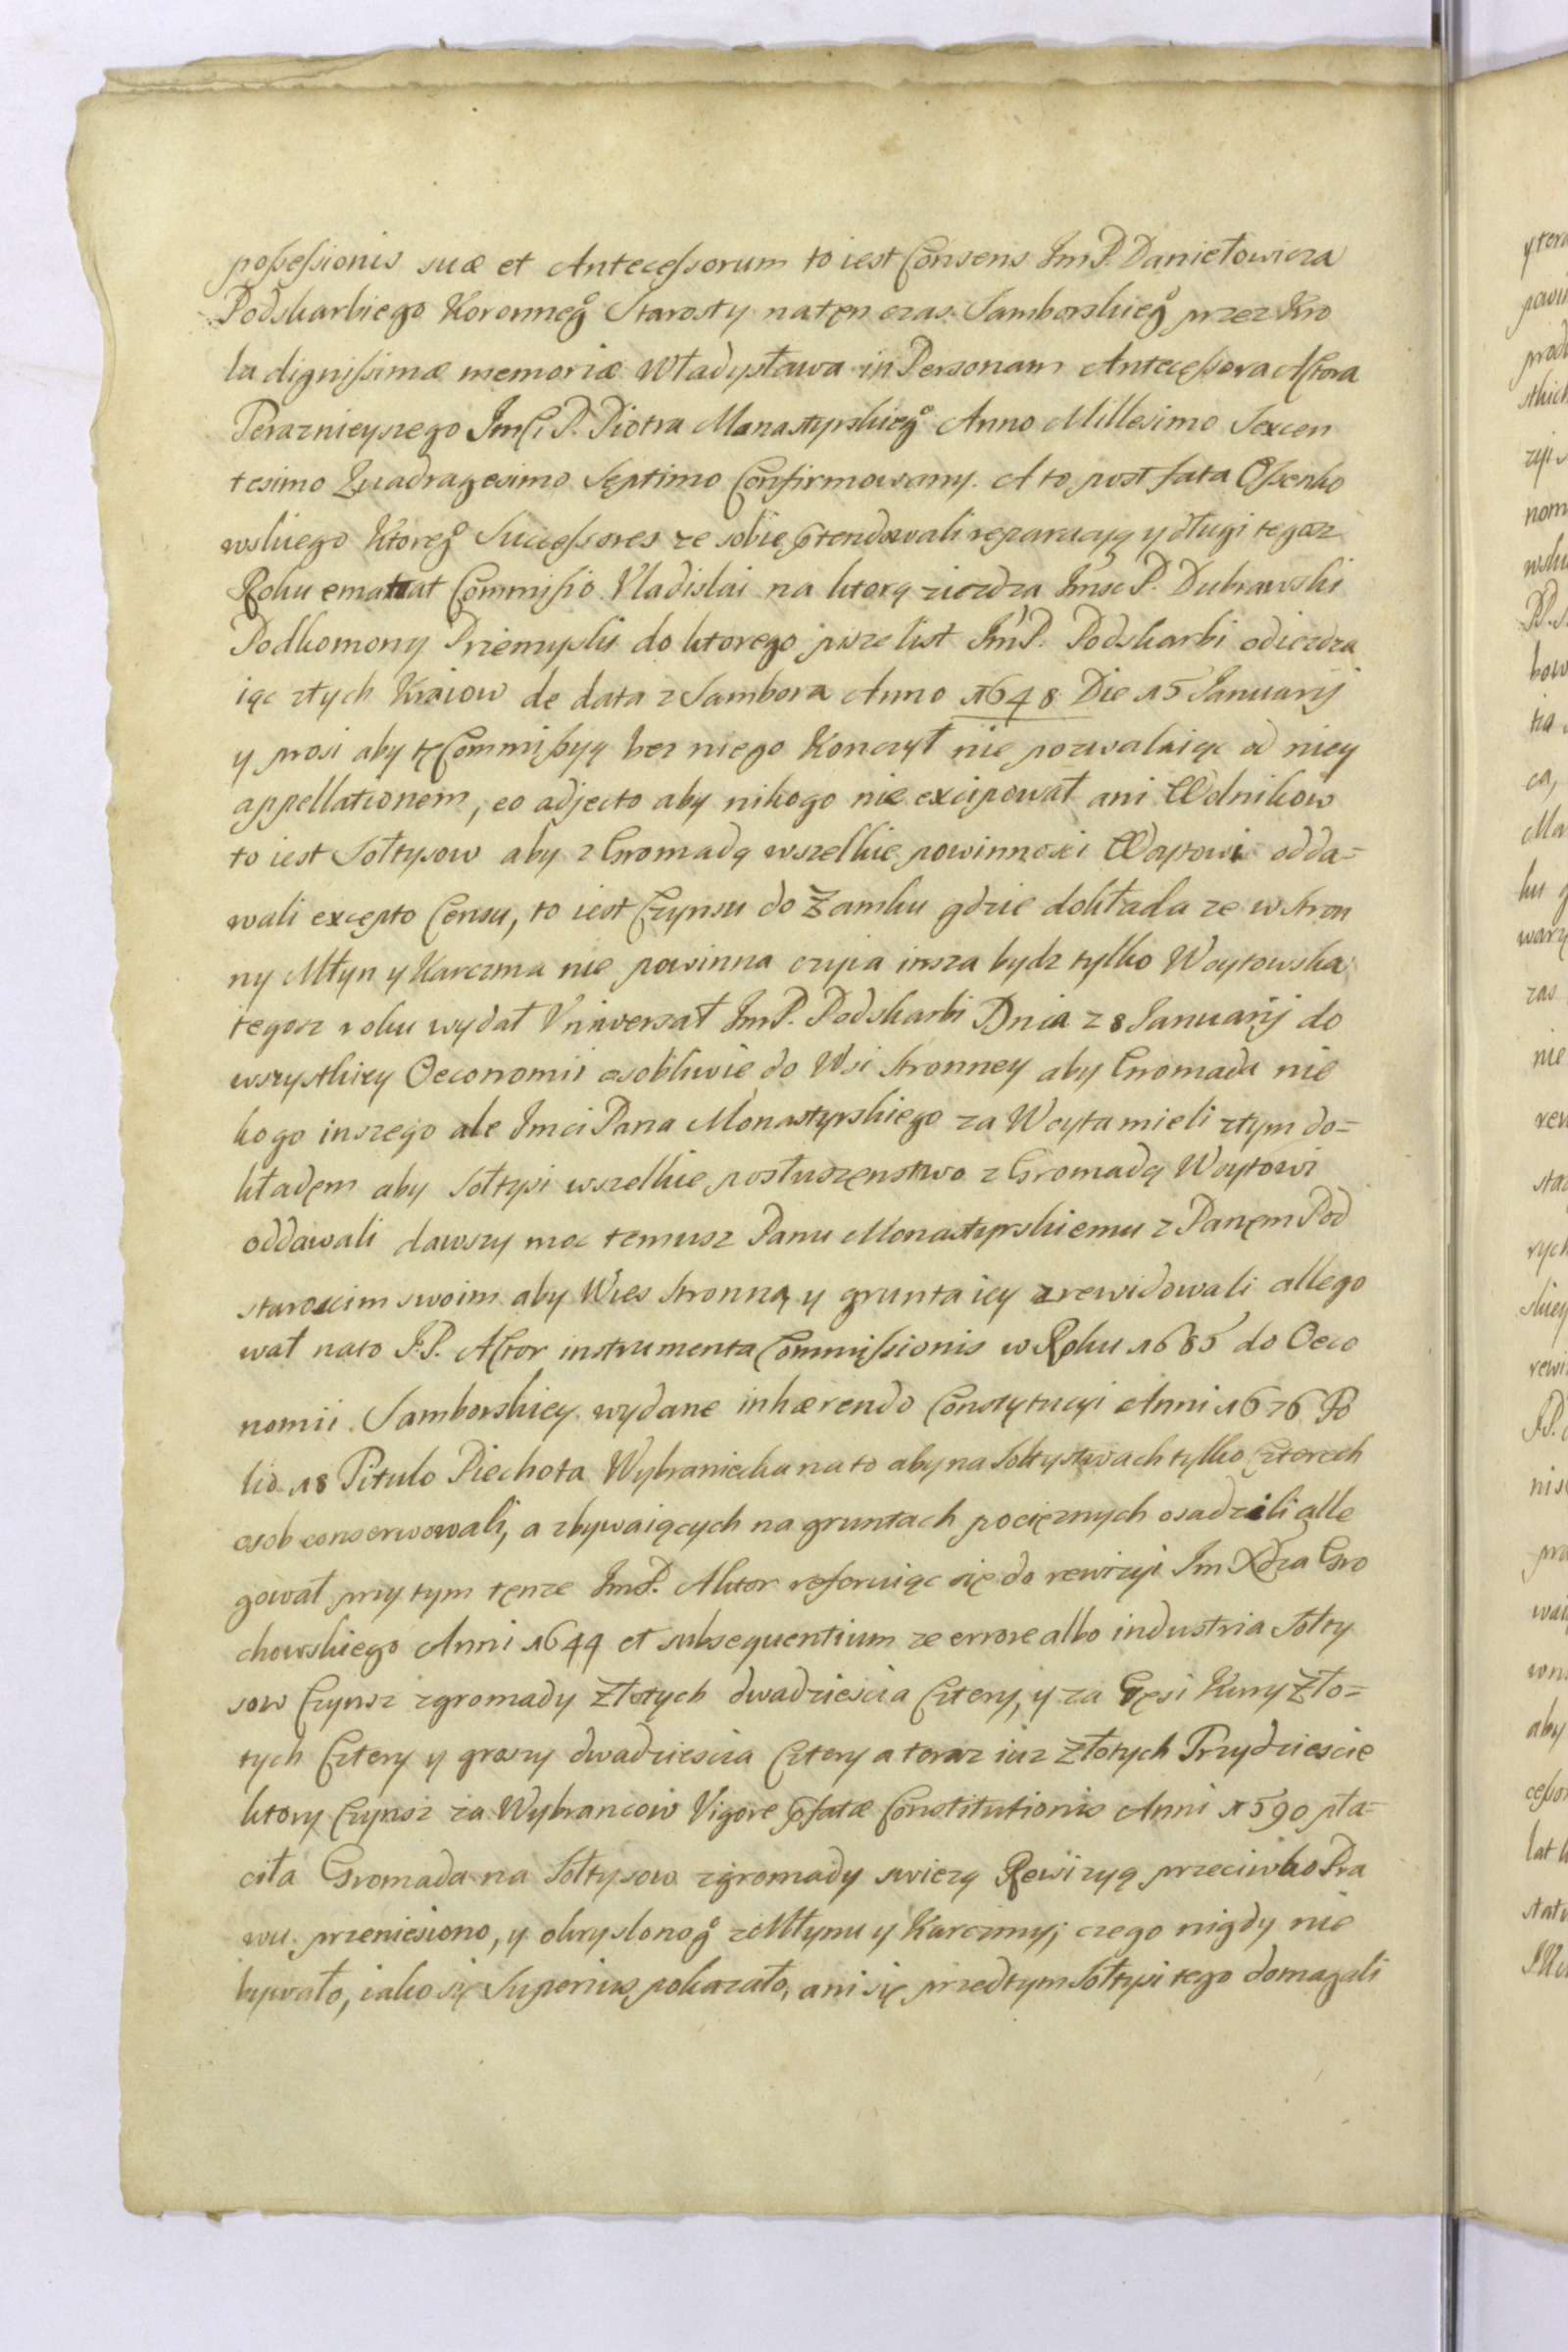 possessionis suæ et Antecessorum to iest Consens ImP. Daniełowicza
Podskarbiego Koronnego Starosty natęn czas Samborskiego przez Kro
la dignissimæ memoriæ Władysława in Personam Antecessora Actora
Teraznieyszego Imci P. Piotra Manastyrskiego Anno Millesimo Sexcen
tesimo Quadragesimo Septimo Confirmowany. A to post fata Ossenko
wskiego ktorego Successores ze sobie prętendowali reparacyą y długi tegoz
Roku emanat Commissio Vladislai na ktorą ziezdza Imsc P. Dubrawski
Podkomony Przemyski do ktorego pisze list ImP. Podskarbi odiezdza
iąc ztych Kraiow de data z Sambora Anno 1648 Die 15 Januarij
y prosi aby tę Commissyą bez niego Konczył nie pozwalaiąc od niey
appellationem, eo adjecto aby nikogo nie excipował ani Wolnikow
to iest Sołtysow aby z Gromadą wszelkie powinnosci Woytowi odda=
wali excepto Censu, to iest Czynsu do Zamku gdzie dokłada ze w Stron
ny Młyn y Karczma nie powinna czyia insza bydz tylko Woytowska
tegosz roku wydał Vniwersał ImP. Podskarbi Dnia 28 Januarij do
wszystkiey Oeconomii osobliwie do Wsi Stronney aby Gromada nie
kogo inszego ale Imci Pana Monastyrskiego za Woyta mieli ztym do=
kładęm aby Sołtysi wszelkie posłuszęnstwo z Gromadą Woytowi
oddawali dawszy moc temusz Panu Monastyrskiemu z Panęm Pod
staroscim swoim aby Wies Stronną y grunta iey zrewidowali allego
wał nato J.P. Actor instrumenta Commissionis w Roku 1685 do Oeco
nomii Samborskiey wydane inhærendo Constytucyi Anni 1676 Fo
lio 18 Titulo Piechota Wybraniecka na to aby na Sołtystwach tylko Czterech
osob conserwowali, a zbywaiących na gruntach pocięznych osadzili alle
gował przy tym tęnze ImP. Aktor referuiąc się do rewizyi Im Xdza Gro
chowskiego Anni 1644 et subsequentium ze errore albo industria Sołty
sow Czynsz zgromady Złotych dwadziescia Cztery, y za Gęsi Kury Zło=
tych Cztery y groszy dwadziescia Cztery a teraz iuz Złotych Trzydziescie
ktory Czynsz za Wybrancow Vigore præfatæ Constitutionis Anni 1590 pła=
ciła Gromada na Sołtysow zgromady swiezą Rewizyą przeciwko Pra
wu przeniesiono, y okryslonego z Młynu y Karczmy; czego nigdy nie
bywało, iako się Superius pokazało, ani się przedtym Sołtysi tego domagali